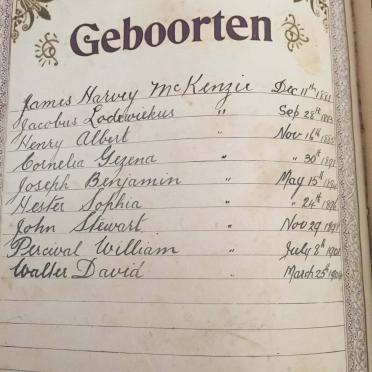 Geboorten
James Harvey McKenzie Dec 11th
Jacobus Lodewickus " Sep 28th
Henry Albert " Nov 16th
Cornelia Gezena " " 30th
Joseph Benjamin " May 15th
Hester Sophia " " 24th
John Stewart " Nov 29
Percival William " July 8th
Walter David " March 25th